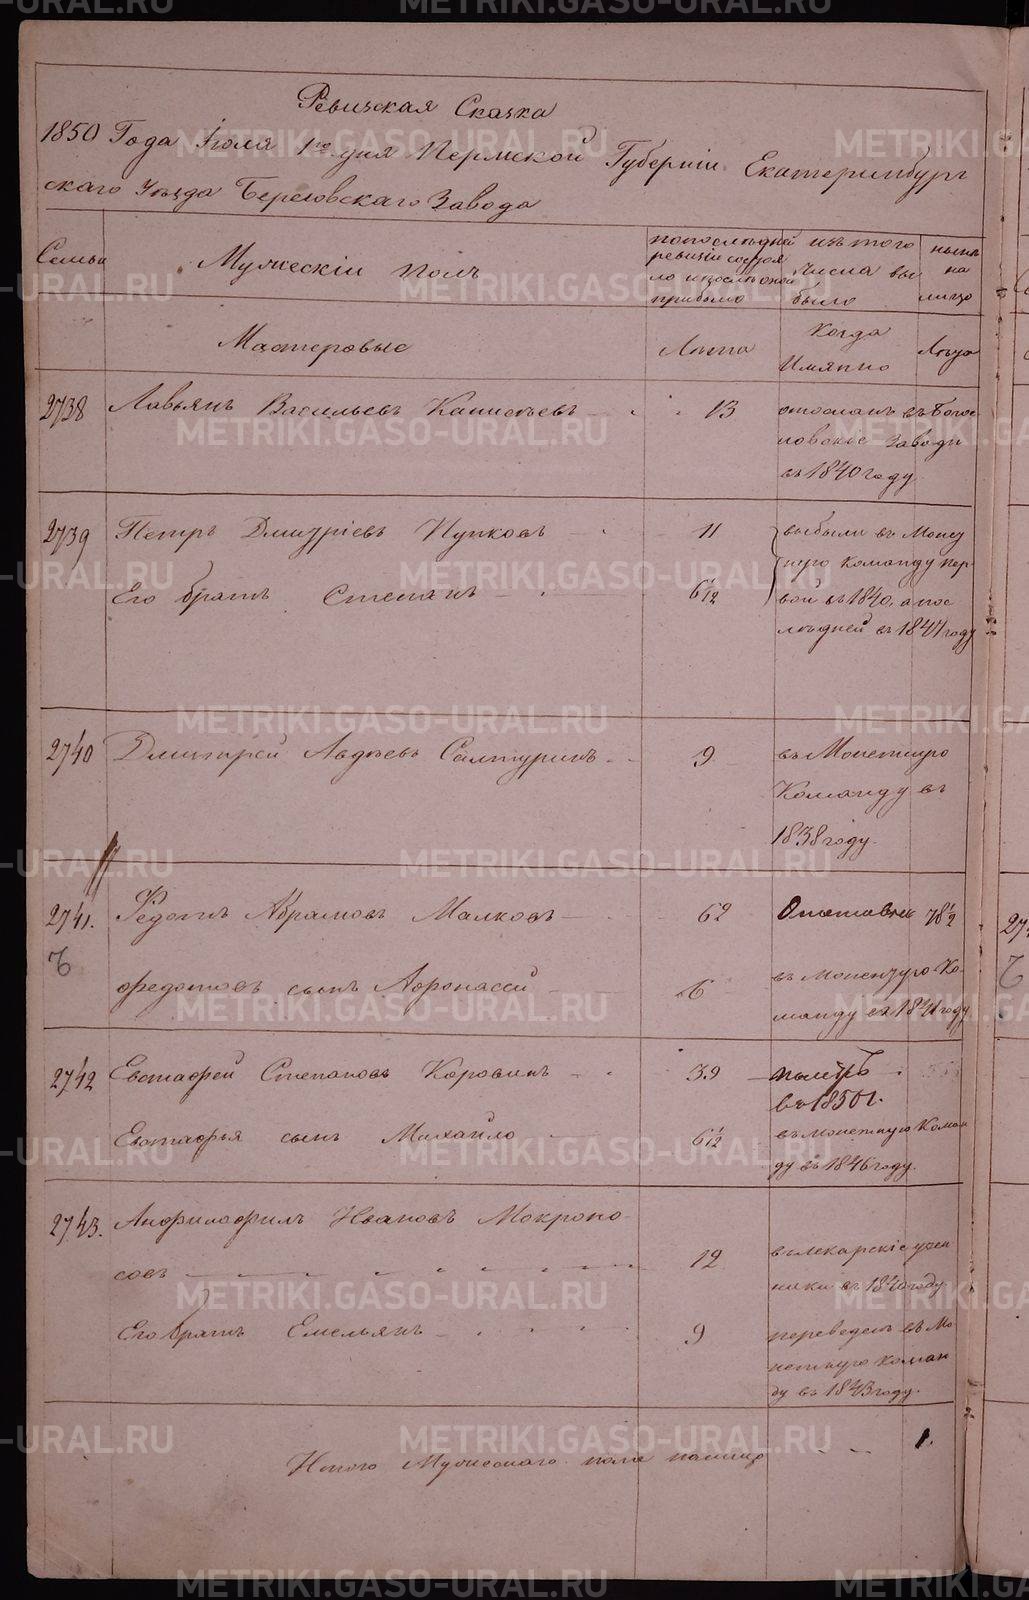 Ревизская Сказка
1850 Года Іюля 1го дня Пермской Губерніи Екатеринбург
скаго Уѣзда Березовскаго Завода
Семьи
Мужескій полъ
по последней
ревизіи состоя
ло и после оной
прибыло
изъ того
числа вы
было
нынѣ
на
лицо
Мастеровые
Лѣта
Когда
Имянно
Лѣта
2738 Васильевъ 13 отосланъ въ Бого
словскіе Заводы
въ 1840 году
2739 Петръ Дмитріевъ Пупковъ 11 выбыли въ Монет
ную команду пер
Его братъ Степанъ 6 1/12 вой въ 1840, а пос
лѣдней въ 1847 году
2740 Дмитрей Авдѣевъ Сатуринъ 9 въ Монетную
Команду въ
1838 году.
2741. Федотъ Абрамовъ Малковъ 62 Отставн 78 1/2
Федотовъ сынъ Афонасей 6 въ монетную Ко
манду въ 1841 году
2742 Евстафей Степановъ Коровинъ 39 въ 1850 г.
Евстафья сынъ Михайло 6 1/12 въ монетную Коман
ду въ 1846 году.
2743. Анфилофилъ Ивановъ Мокроно
совъ 12 въ лекарскіе учен
ники въ 1840 году
Его братъ Емельянъ 9 переведенъ въ Мо
нетную коман
ду въ 1843 году.
Итого Мужескаго пола налицо 1.
METRIKI.GASO-URAL.RU